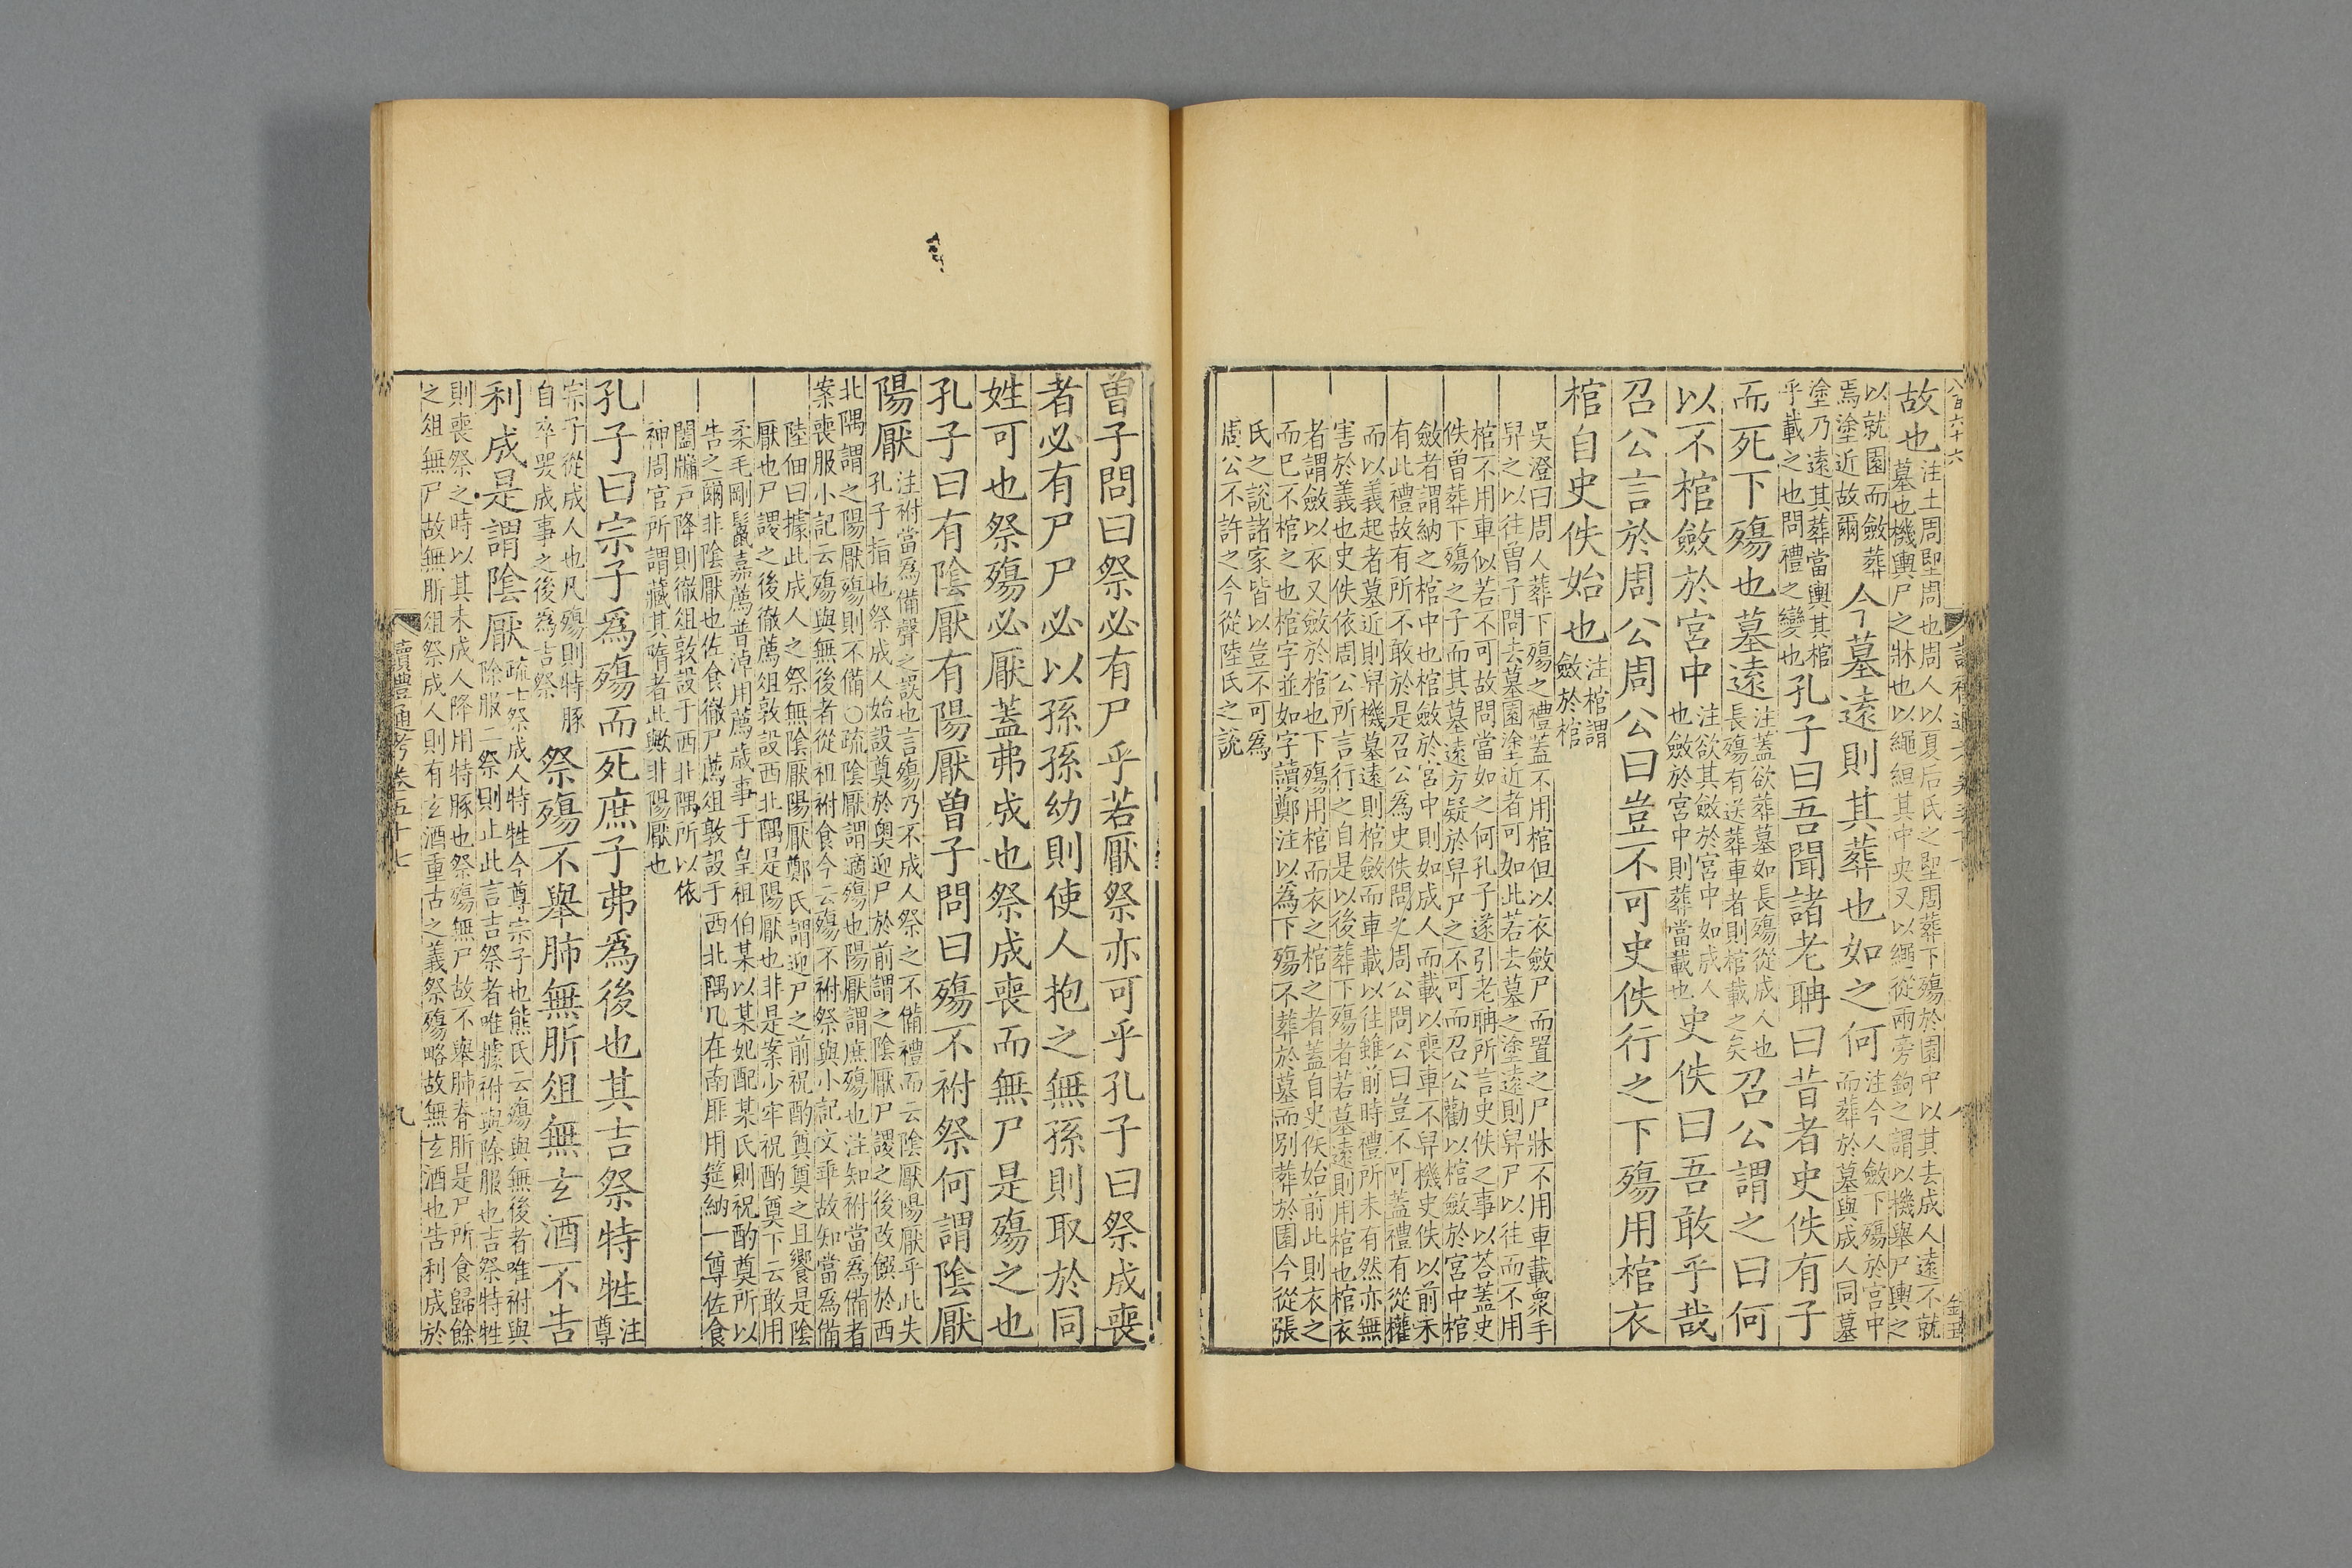 八百六十六
故也注土周堲周也周人以夏后氏之堲周葬下殤於園中以其去成人遠不就
墓也機輿尸之牀也以繩絙其中央又以繩從兩旁鉤之謂以機舉尸輿之
以就園而斂葬
焉塗近故爾
今墓遠則其葬也如之何注今人斂下殤於宮中
而葬於墓與成人同墓
塗乃遠其葬當輿其棺
乎載之也問禮之變也
孔子曰吾聞諸老聃曰昔者史佚有子
而死下殤也墓遠注蓋欲葬墓如長殤從成人也
長殤有送葬車者則棺載之矣召公謂之曰何
以不棺斂於宮中注欲其斂於宮中如成人
也斂於宮中則葬當載也史佚曰吾敢乎哉
召公言於周公周公曰豈不可史佚行之下殤用棺衣
棺自史佚始也注棺謂
斂於棺
吳澄曰周人葬下殤之禮蓋不用棺但以衣斂尸而置之尸牀不用車載衆手
舁之以往曾子問去墓園塗近者可如此若去墓之塗遠則舁尸以往而不用
棺不用車似若不可故問當如之何孔子遂引老聃所言史佚之事以荅蓋史
佚曾葬下殤之子而其墓遠方疑於舁尸之不可而召公勸以棺斂於宮中棺
斂者謂納之棺中也棺斂於宮中則如成人而載以喪車不舁機史佚以前未
有此禮故有所不敢於是召公爲史佚問於周公周公曰豈不可蓋禮有從權
而以義起者墓近則舁機墓遠則棺斂而車載以往雖前時禮所未有然亦無
害於義也史佚依周公所言行之自是以後葬下殤者若墓遠則用棺也棺衣
者謂斂以衣又斂於棺也下殤用棺而衣之棺之者蓋自史佚始前此則衣之
而已不棺之也棺字並如字讀鄭注以為下殤不葬於墓而別葬於園今從張
氏之說諸家皆以豈不可爲
周公不許之今從陸氏之說
曾子問曰祭必有尸乎若厭祭亦可乎孔子曰祭成喪
者必有尸尸必以孫孫幼則使人抱之無孫則取於同
姓可也祭殤必厭蓋弗成也祭成喪而無尸是殤之也
孔子曰有陰厭有陽厭曾子問曰殤不祔祭何謂陰厭
陽厭注祔當為備聲之誤也言殤乃不成人祭之不備禮而云陰厭陽厭乎此失
孔子指也祭成人始設奠於奧迎尸於前謂之陰厭尸謖之後改饌於西
北隅謂之陽厭殤則不備○疏陰厭謂適殤也陽厭謂庶殤也注知祔當爲備者
案喪服小記云殤與無後者從祖祔食今云殤不祔祭與小記文乖故知當爲備
陸佃曰據此成人之祭無陰厭陽厭鄭氏謂迎尸之前祝酌奠奠之且饗是陰
厭也尸謖之後徹薦俎敦設西北隅是陽厭也非是案少牢祝酌奠下云敢用
柔毛剛鬣嘉薦普淖用薦歲事于皇祖伯某以某妃配某氏則祝酌奠所以
告之爾非陰厭也佐食徹尸薦俎敦設于西北隅几在南厞用筵納一尊佐食
闔牖戶降則徹俎敦設于西北隅所以依
神周官所謂藏其隋者此歟非陽厭也
孔子曰宗子爲殤而死庶子弗爲後也其吉祭特牲注
尊
宗子從成人也凡殤則特豚
自卒哭成事之後爲吉祭
祭殤不舉肺無肵俎無玄酒不告
利成是謂陰厭疏士祭成人特牲今尊宗子也熊氏云殤與無後者唯祔與
除服二祭則止此言吉祭者唯據祔與除服也吉祭特牲
則喪祭之時以其未成人降用特豚也祭殤無尸故不舉肺脊肵是尸所食歸餘
之俎無尸故無肵俎祭成人則有玄酒重古之義祭殤略故無玄酒也告利成於
讀禮通考卷五十七
九